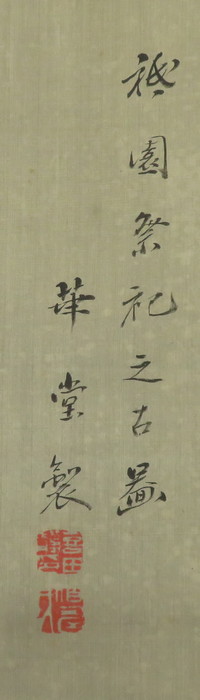 祇園祭祀之古啚
華堂製